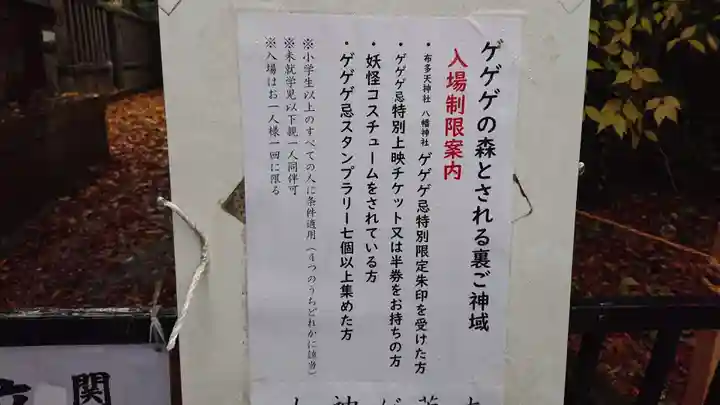 ゲゲゲの森とされる裏ご神域
入場制限案内
・布多天神社 八幡神社 ゲゲゲ忌特別限定朱印を受けた方
・ゲゲゲ忌特別上映チケット又は半券をお持ちの方
・妖怪コスチュームをされている方
・ゲゲゲ忌スタンプラリー七個以上集めた方
※小学生以上のすべての人に条件適用（4つのうちどれかに該当）
※未就学児以下親一人同伴可
※入場はお一人様一回に限る
関